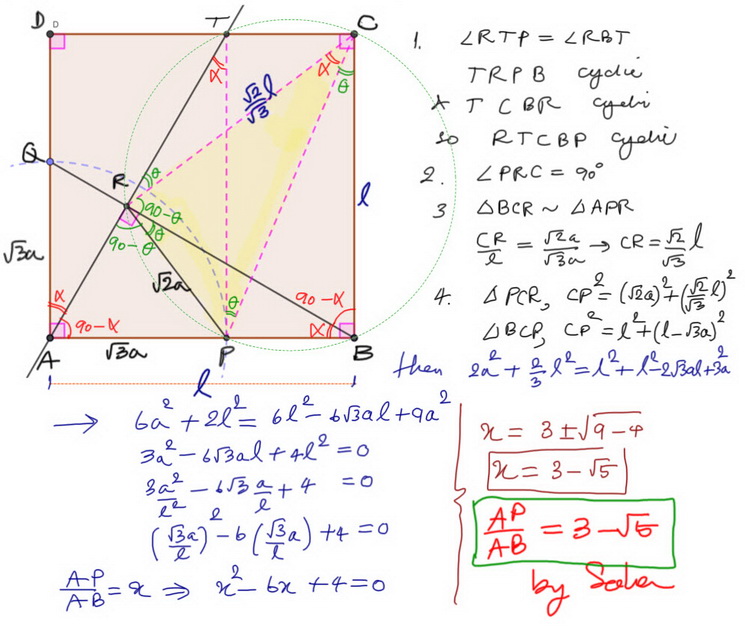 D D T C
α α θ
√2/√3 l
Q
R θ
90-θ
θ
90-θ
l
√3a
√2a
α
90-α
θ
90-α
α
A √3a P B
l
1. ∠RTP = ∠RBT
TRPB cyclic
∧ TCBR cyclic
so RTCBP cyclic
2. ∠PRC = 90°
3 △BCR ~ △APR
CR/l = √2a/√3a → CR = √2/√3 l
4. △PCR, CP² = (√2a)² + (√2/√3 l)²
△BCP, CP² = l² + (l-√3a)²
then 2a² + 2/3 l² = l² + l² - 2√3al + 3a²
→ 6a² + 2l² = 6l² - 6√3al + 9a²
3a² - 6√3al + 4l² = 0
3a²/l² - 6√3 a/l + 4 = 0
(√3a/l)² - 6(√3a/l) + 4 = 0
AP/AB = x ⇒ x² - 6x + 4 = 0
x = 3 ± √9-4
x = 3 - √5
AP/AB = 3 - √5
by